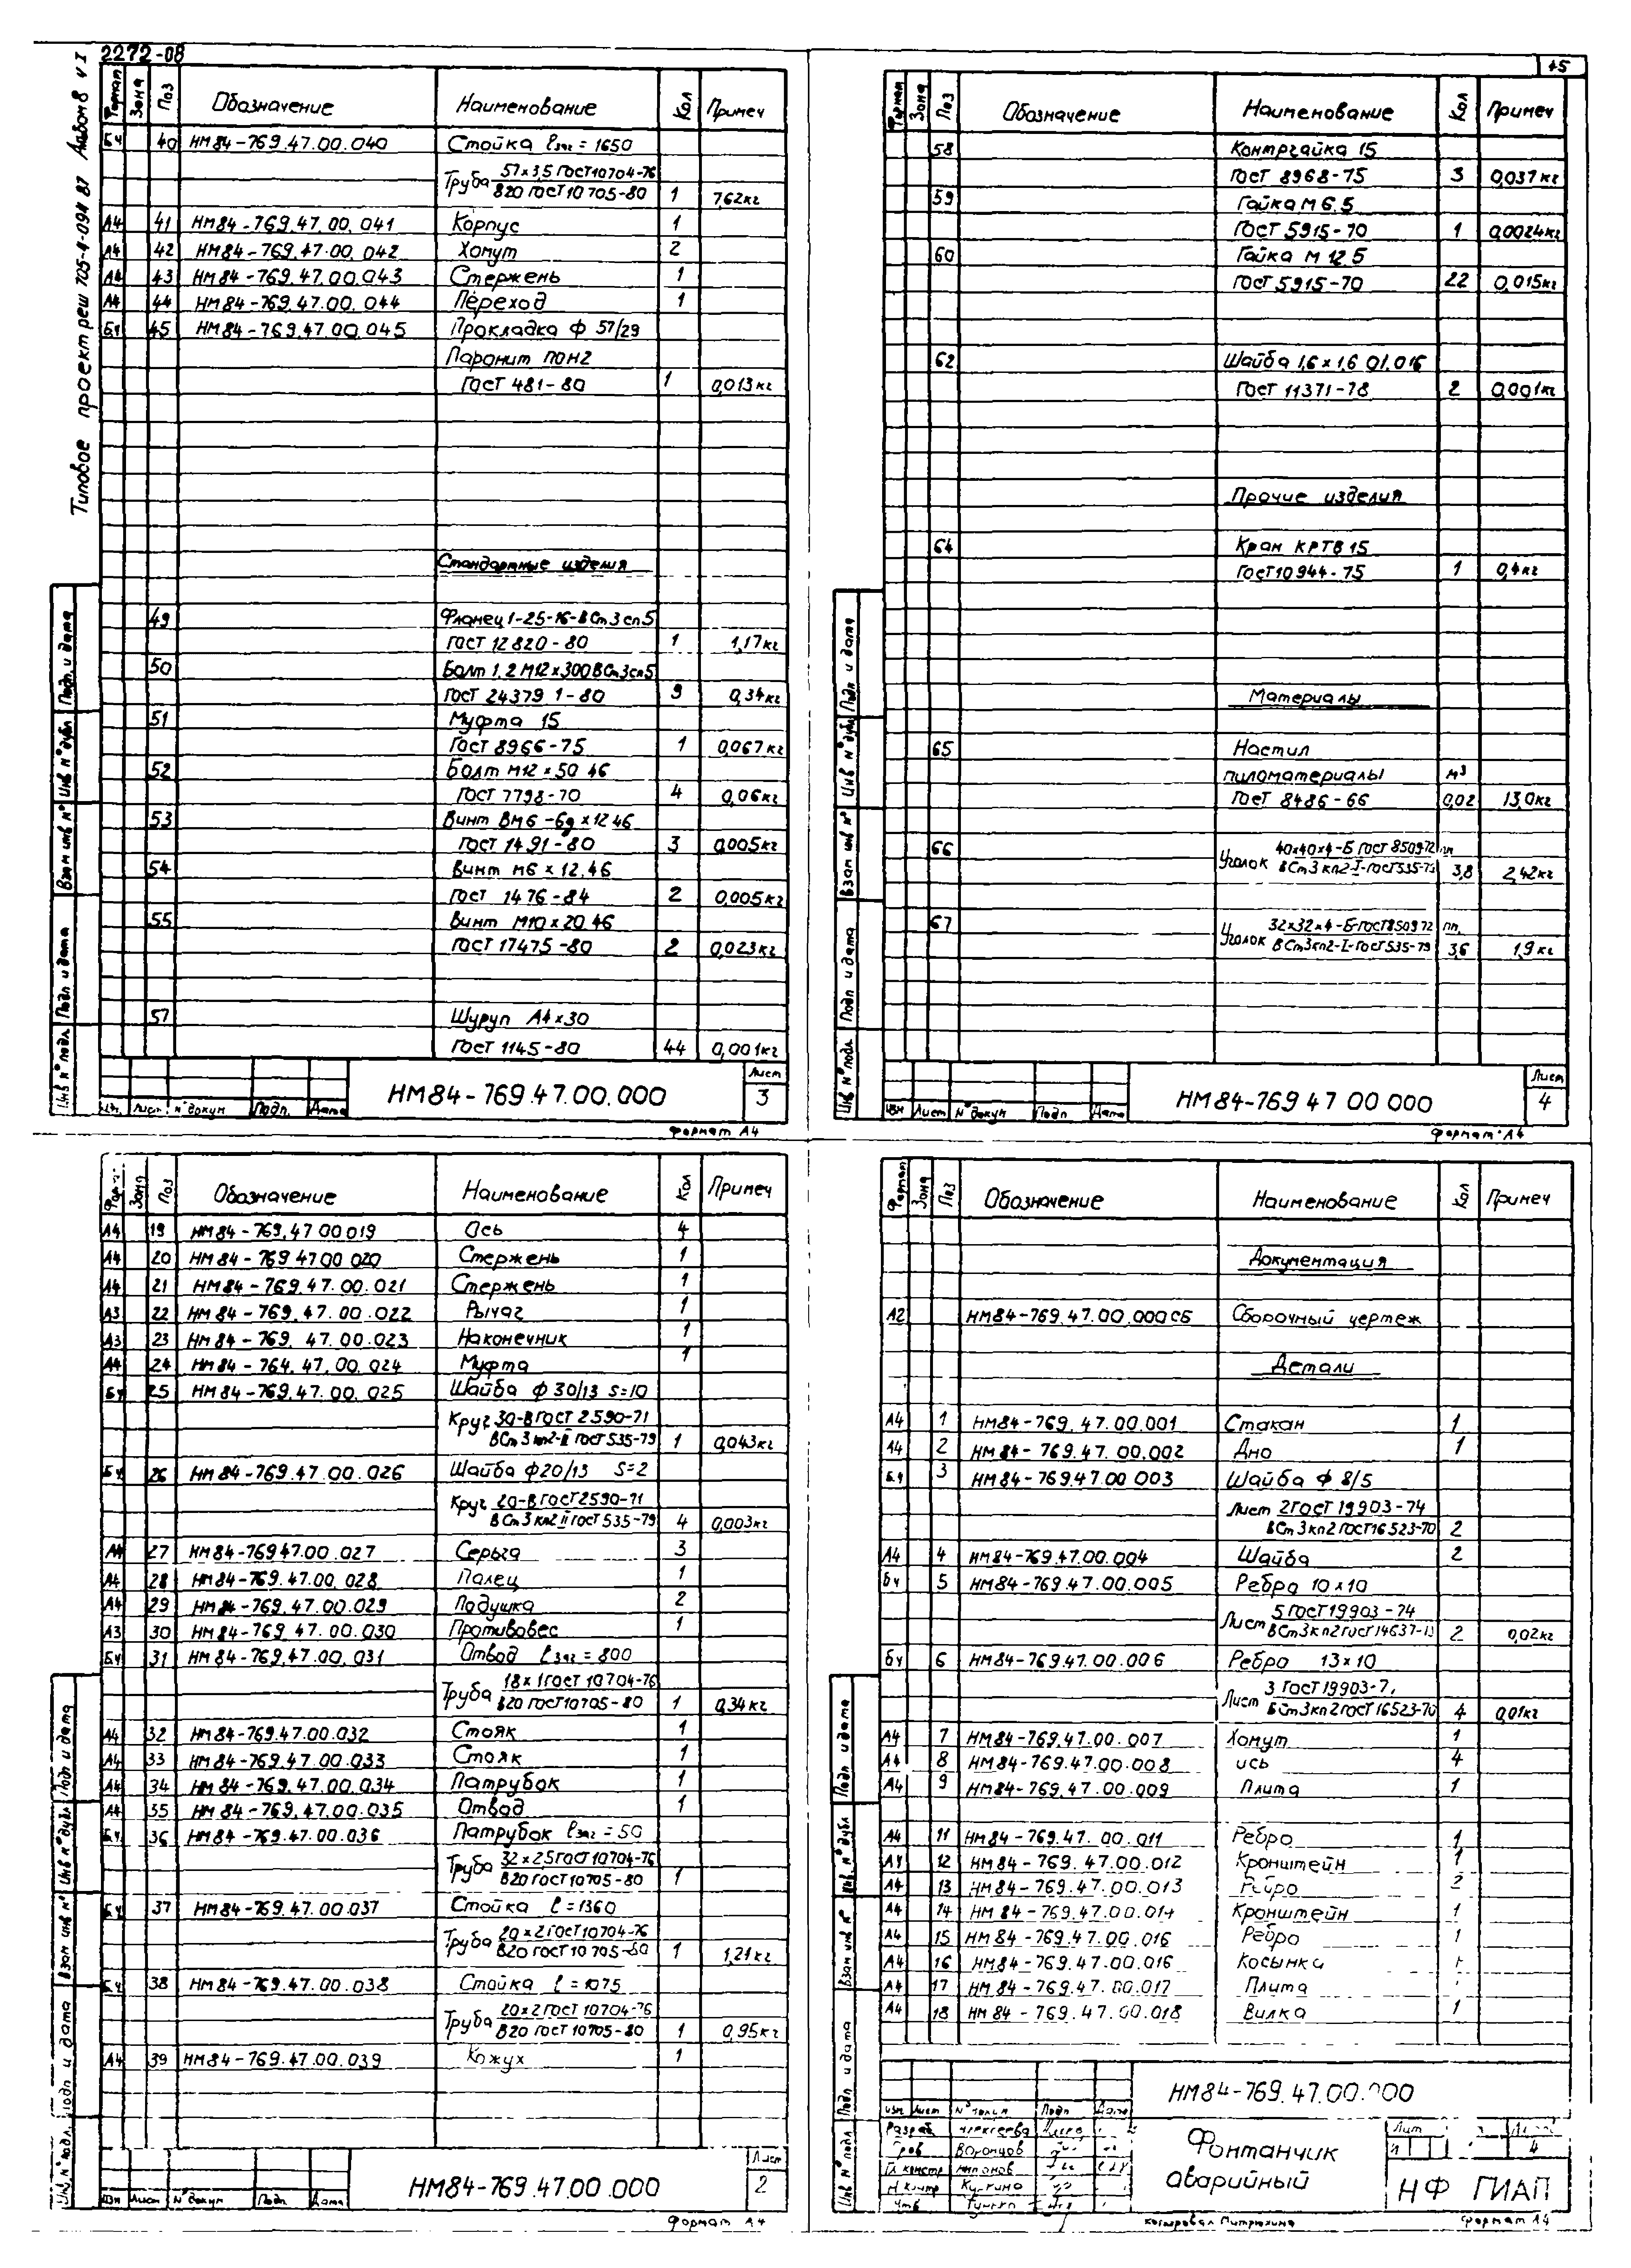 2272-08
Типовое проект реш 705-4-094 87 Альбом VI
45
Формат Зона Поз Обозначение Наименование Кол Примеч
БЧ 40 НМ84-769.47.00.040 Стойка ℓзаг = 1650
Труба 57×3,5 ГОСТ10704-76
В20 ГОСТ 10705-80 1 7,62кг
А4 41 НМ84-769.47.00.041 Корпус 1
А4 42 НМ84-769.47.00.042 Хомут 2
А4 43 НМ84-769.47.00.043 Стержень 1
А4 44 НМ84-769.47.00.044 Переход 1
БЧ 45 НМ84-769.47.00.045 Прокладка ф 57/29
Паронит ПОН2
ГОСТ 481-80 1 0,013кг
Стандартные изделия
49 Фланец 1-25-16-ВСт3сп5
ГОСТ 12820-80 1 1,17кг
50 Болт 1.2 М12×300ВСт3сп5
ГОСТ 24379 1-80 9 0,34кг
51 Муфта 15
ГОСТ 8966-75 1 0,067кг
52 Болт М12×50 46
ГОСТ 7798-70 4 0,06кг
53 Винт ВМ6-6g×12 46
ГОСТ 1491-80 3 0,005кг
54 Винт М6×12.46
ГОСТ 1476-84 2 0,005кг
55 Винт М10×20 46
ГОСТ 17475-80 2 0,023кг
57 Шуруп А4×30
ГОСТ 1145-80 44 0,001кг
Инв N° подл. Подп и дата Взам инв N° Инв N° дубл Подп. и дата
Изм. Лист N° докум Подп. Дата
НМ84-769.47.00.000
Лист
3
Формат А4
Формат Зона Поз Обозначение Наименование Кол Примеч
58 Контргайка 15
ГОСТ 8968-75 3 0,037кг
59 Гайка М 6.5
ГОСТ 5915-70 1 0,0024кг
60 Гайка М 12 5
ГОСТ 5915-70 22 0,015кг
62 Шайба 1,6×1,6 01.016
ГОСТ 11371-78 2 0,001кг
Прочие изделия
64 Кран КРТВ 15
ГОСТ10944-75 1 0,4кг
Материалы
65 Настил
пиломатериалы м³
ГОСТ 8486-66 0,02 13,0кг
66 Уголок 40×40×4-Б ГОСТ 8509 72 пп
ВСт3кп2-I-ГОСТ535-79 3,8 2,42кг
67 Уголок 32×32×4-Б-ГОСТ8509 72 пп.
ВСт3кп2-I-ГОСТ535-79 3,6 1,9кг
Инв N° подл. Подп и дата Взам инв N° Инв N° дубл Подп и дата
Изм Лист N° докум Подп Дата
НМ84-769 47 00 000
Лист
4
Формат А4
Зона Поз Обозначение Наименование Кол Примеч
А4 19 НМ84-769.47 00 019 Ось 4
А4 20 НМ84-769 47 00 020 Стержень 1
А4 21 НМ84-769.47.00.021 Стержень 1
А3 22 НМ84-769.47.00.022 Рычаг 1
А3 23 НМ84-769.47.00.023 Наконечник 1
А4 24 НМ84-764.47.00.024 Муфта 1
БЧ 25 НМ84-769.47.00.025 Шайба ф 30/13 S=10
Круг 30-В ГОСТ 2590-71
ВСт3кп2-II ГОСТ535-79 1 0,043кг
БЧ 26 НМ84-769.47.00.026 Шайба ф20/13 S=2
Круг 20-В ГОСТ2590-71
ВСт3кп2 II ГОСТ 535-79 4 0,003кг
А4 27 НМ84-769 47.00.027 Серьга 3
А4 28 НМ84-769.47.00.028 Палец 1
А4 29 НМ84-769.47.00.029 Подушка 2
А3 30 НМ84-769.47.00.030 Противовес 1
БЧ 31 НМ84-769.47.00.031 Отвод ℓзаг = 800
Труба 18×1 ГОСТ 10704-76
В20 ГОСТ10705-80 1 0,34кг
А4 32 НМ84-769.47.00.032 Стояк 1
А4 33 НМ84-769.47.00.033 Стояк 1
А4 34 НМ84-769.47.00.034 Патрубок 1
А4 35 НМ84-769.47.00.035 Отвод 1
БЧ 36 НМ84-769.47.00.036 Патрубок ℓзаг = 50
Труба 32×25ГОСТ10704-76
В20 ГОСТ10705-80 1
БЧ 37 НМ84-769.47.00.037 Стойка ℓ = 1360
Труба 20×2 ГОСТ 10704-76
В20 ГОСТ 10 705-80 1 1,21кг
БЧ 38 НМ84-769.47.00.038 Стойка ℓ = 1075
Труба 20×2 ГОСТ 10704-76
В20 ГОСТ 10705-80 1 0,95кг
А4 39 НМ84-769.47.00.039 Кожух 1
Инв. N° подл. Подп и дата Взам инв N° Инв N° дубл Подп и дата
Изм Лист N° докум Подп Дата
НМ84-769.47.00.000
Лист
2
Формат А4
Формат Зона Поз Обозначение Наименование Кол Примеч
Документация
А2 НМ84-769.47.00.000СБ Сборочный чертеж
Детали
А4 1 НМ84-769.47.00.001 Стакан 1
А4 2 НМ84-769.47.00.002 Дно 1
БЧ 3 НМ84-769.47.00 003 Шайба ф 8/5
Лист 2ГОСТ 19903-74
ВСт3кп2 ГОСТ16523-70 2
А4 4 НМ84-769.47.00.004 Шайба 2
БЧ 5 НМ84-769.47.00.005 Ребро 10×10
Лист 5 ГОСТ19903-74
ВСт3кп2 ГОСТ14637- 2 0,02кг
БЧ 6 НМ84-769.47.00.006 Ребро 13×10
Лист 3 ГОСТ19903-7
БСт3кп2 ГОСТ 16523-70 4 0,01кг
А4 7 НМ84-769.47.00.007 Хомут 1
А4 8 НМ84-769.47.00.008 Ось 4
А4 9 НМ84-769.47.00.009 Плита 1
А4 11 НМ84-769.47.00.011 Ребро 1
А4 12 НМ84-769.47.00.012 Кронштейн 1
А4 13 НМ84-769.47.00.013 Ребро 2
А4 14 НМ84-769.47.00.014 Кронштейн 1
А4 15 НМ84-769.47.00.016 Ребро 1
А4 16 НМ84-769.47.00.016 Косынка
А4 17 НМ84-769.47.00.017 Плита
А4 18 НМ84-769.47.00.018 Вилка 1
Инв N° подл Подп и дата Взам инв N° Инв. N° дубл Подп и дата
НМ84-769.47.00.000
Изм Лист Подп Дата
Разраб
Пров Воронцов
Гл констр
Н контр
Утв
Фонтанчик
аварийный
Лит
4
НФ ГИАП
Копировал Формат А4